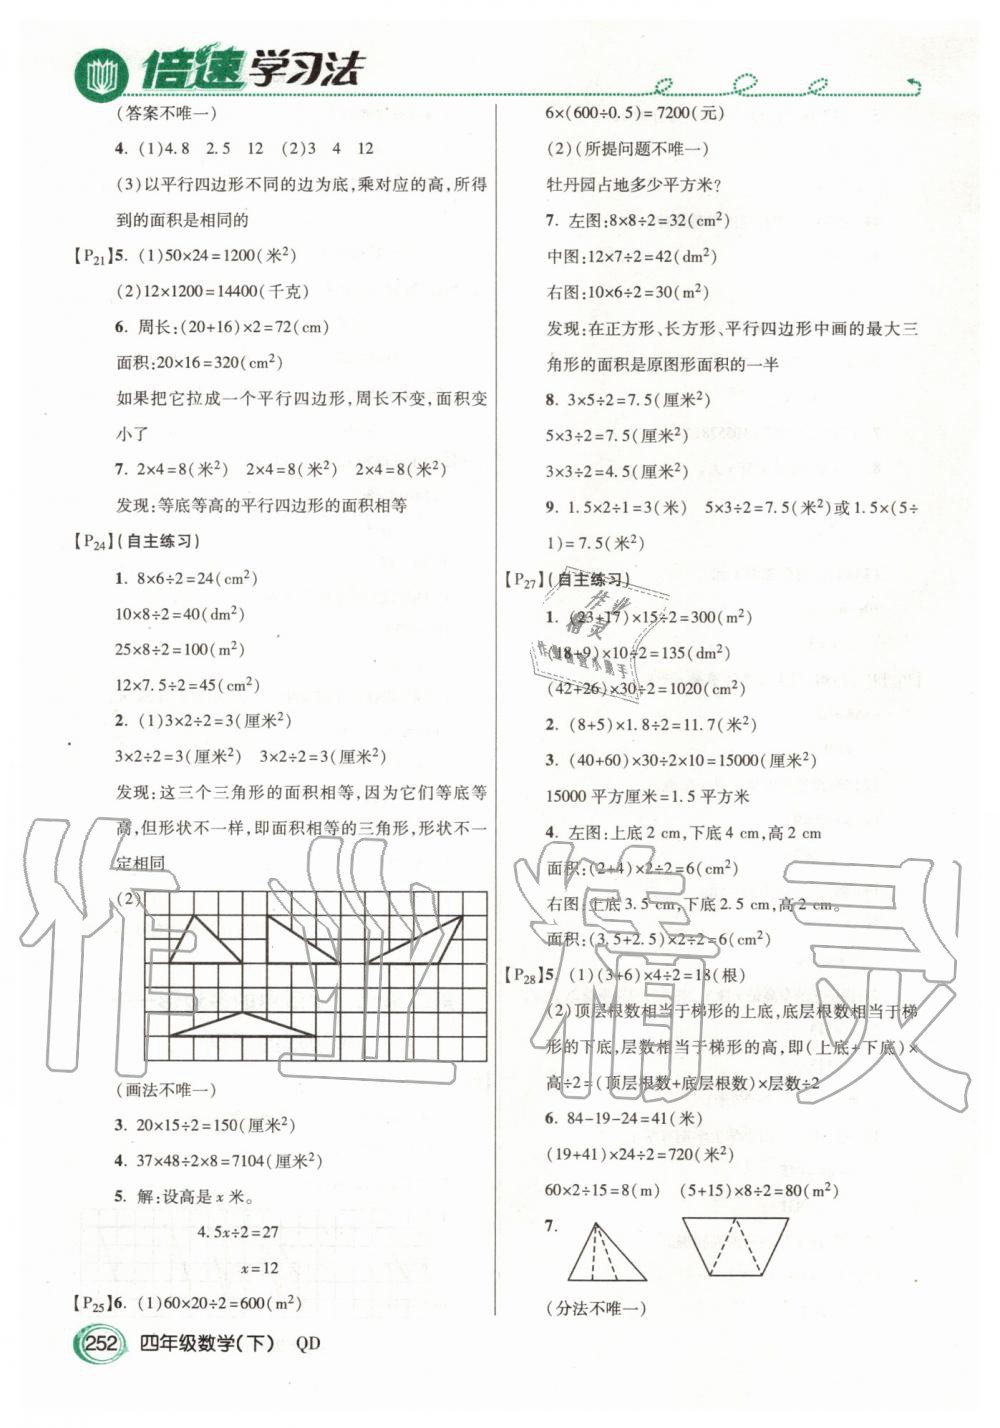 倍速学习法
(答案不唯一)
4. (1)4.8 2.5 12 (2)3 4 12
(3)以平行四边形不同的边为底,乘对应的高,所得
到的面积是相同的
【P21】5. (1)50×24=1200(米²)
(2)12×1200=14400(千克)
6. 周长:(20+16)×2=72(cm)
面积:20×16=320(cm²)
如果把它拉成一个平行四边形,周长不变,面积变
小了
7. 2×4=8(米²) 2×4=8(米²) 2×4=8(米²)
发现:等底等高的平行四边形的面积相等
【P24】(自主练习)
1. 8×6÷2=24(cm²)
10×8÷2=40(dm²)
25×8÷2=100(m²)
12×7.5÷2=45(cm²)
2. (1)3×2÷2=3(厘米²)
3×2÷2=3(厘米²) 3×2÷2=3(厘米²)
发现:这三个三角形的面积相等,因为它们等底等
高,但形状不一样,即面积相等的三角形,形状不一
定相同
(2)
(画法不唯一)
3. 20×15÷2=150(厘米²)
4. 37×48÷2×8=7104(厘米²)
5. 解:设高是x米。
4.5x÷2=27
x=12
【P25】6. (1)60×20÷2=600(m²)
6×(600÷0.5)=7200(元)
(2)(所提问题不唯一)
牡丹园占地多少平方米?
7. 左图:8×8÷2=32(cm²)
中图:12×7÷2=42(dm²)
右图:10×6÷2=30(m²)
发现:在正方形、长方形、平行四边形中画的最大三
角形的面积是原图形面积的一半
8. 3×5÷2=7.5(厘米²)
5×3÷2=7.5(厘米²)
3×3÷2=4.5(厘米²)
9. 1.5×2÷1=3(米) 5×3÷2=7.5(米²)或1.5×(5÷
1)=7.5(米²)
【P27】(自主练习)
1. (23+17)×15÷2=300(m²)
(18+9)×10÷2=135(dm²)
(42+26)×30÷2=1020(cm²)
2. (8+5)×1.8÷2=11.7(米²)
3. (40+60)×30÷2×10=15000(厘米²)
15000平方厘米=1.5平方米
4. 左图:上底2 cm,下底4 cm,高2 cm
面积:(2+4)×2÷2=6(cm²)
右图:上底3.5 cm,下底2.5 cm,高2 cm。
面积:(3.5+2.5)×2÷2=6(cm²)
【P28】5 (1)(3+6)×4÷2=18(根)
(2)顶层根数相当于梯形的上底,底层根数相当于梯
形的下底,层数相当于梯形的高,即(上底+下底)×
高÷2=(顶层根数+底层根数)×层数÷2
6. 84-19-24=41(米)
(19+41)×24÷2=720(米²)
60×2÷15=8(m) (5+15)×8÷2=80(m²)
7.
(分法不唯一)
作业
精灵
作业检查小助手
作业精灵
252 四年级数学(下) QD